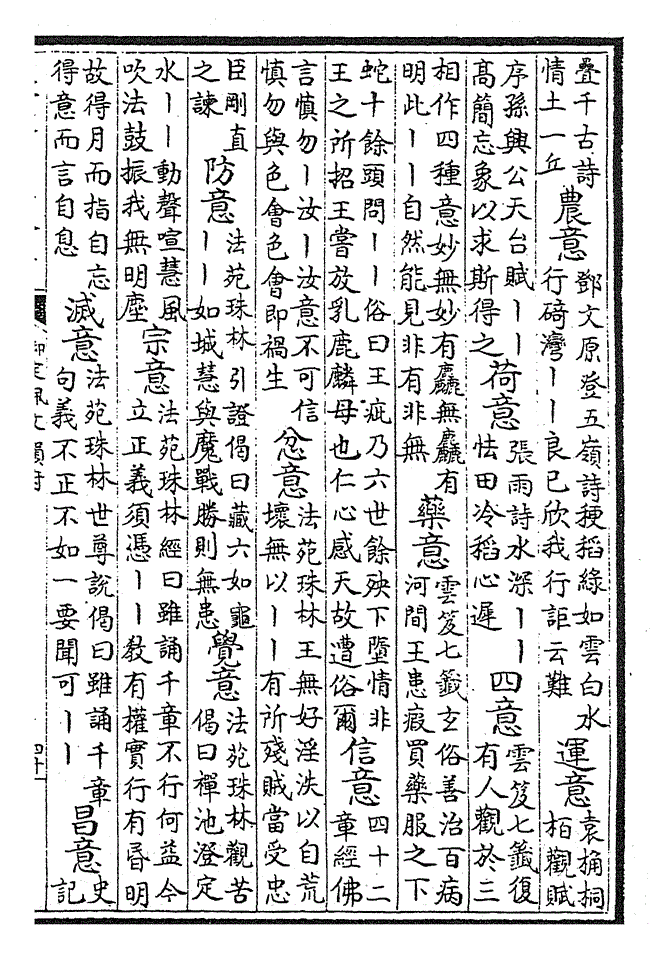 疊千古詩
情土一丘
農意
鄧文原登五嶺詩稉稻綠如雲白水
行碕灣丨丨良已欣我行詎云難
運意
袁桷桐
柏觀賦
序孫興公天台賦丨丨
高簡忘象以求斯得之
荷意
張雨詩水深丨丨
怯田冷稻心遲
四意
雲笈七籤復
有人觀於三
相作四種意妙無妙有麤無麤有
明此丨丨自然能見非有非無
藥意
雲笈七籤玄俗善治百病
河間王患瘕買藥服之下
蛇十餘頭問丨丨俗曰王疵乃六世餘殃下墮情非
王之所招王嘗放乳鹿麟母也仁心感天故遭俗爾
信意
四十二
章經佛
言慎勿丨汝丨汝意不可信
慎勿與色會色會即禍生
忿意
法苑珠林王無好淫泆以自荒
壞無以丨丨有所殘賊當受忠
臣剛直
之諫
防意
法苑珠林引證偈曰藏六如龜
丨丨如城慧與魔戰勝則無患
覺意
法苑珠林觀苦
偈曰禪池澄定
水丨丨動聲喧慧風
吹法鼓振我無明塵
宗意
法苑珠林經曰雖誦千章不行何益今
立正義須憑丨丨教有權實行有昏明
故得月而指自忘
得意而言自息
滅意
法苑珠林世尊說偈曰雖誦千章
句義不正不如一要聞可丨丨
昌意
史
記